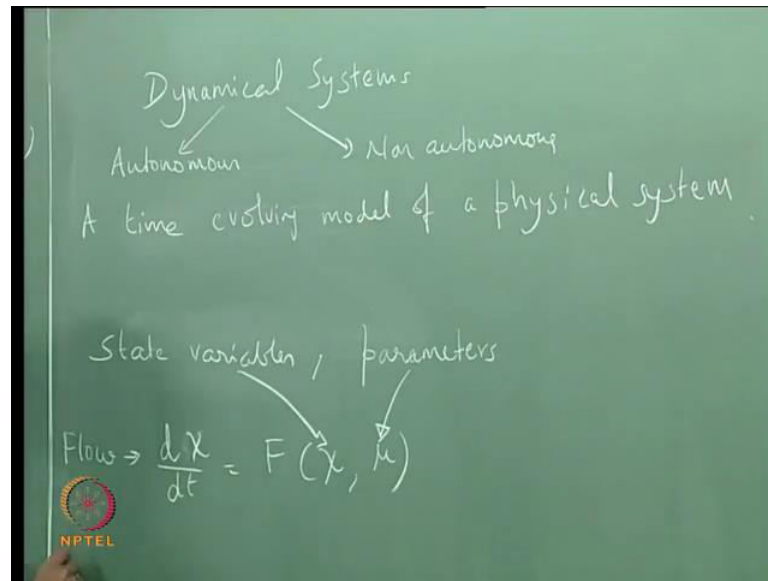 )
Dynamical Systems
Autonomous Non autonomous
A time evolving model of a physical system.
State variables, parameters
Flow → dX/dt = F(X, μ)
NPTEL